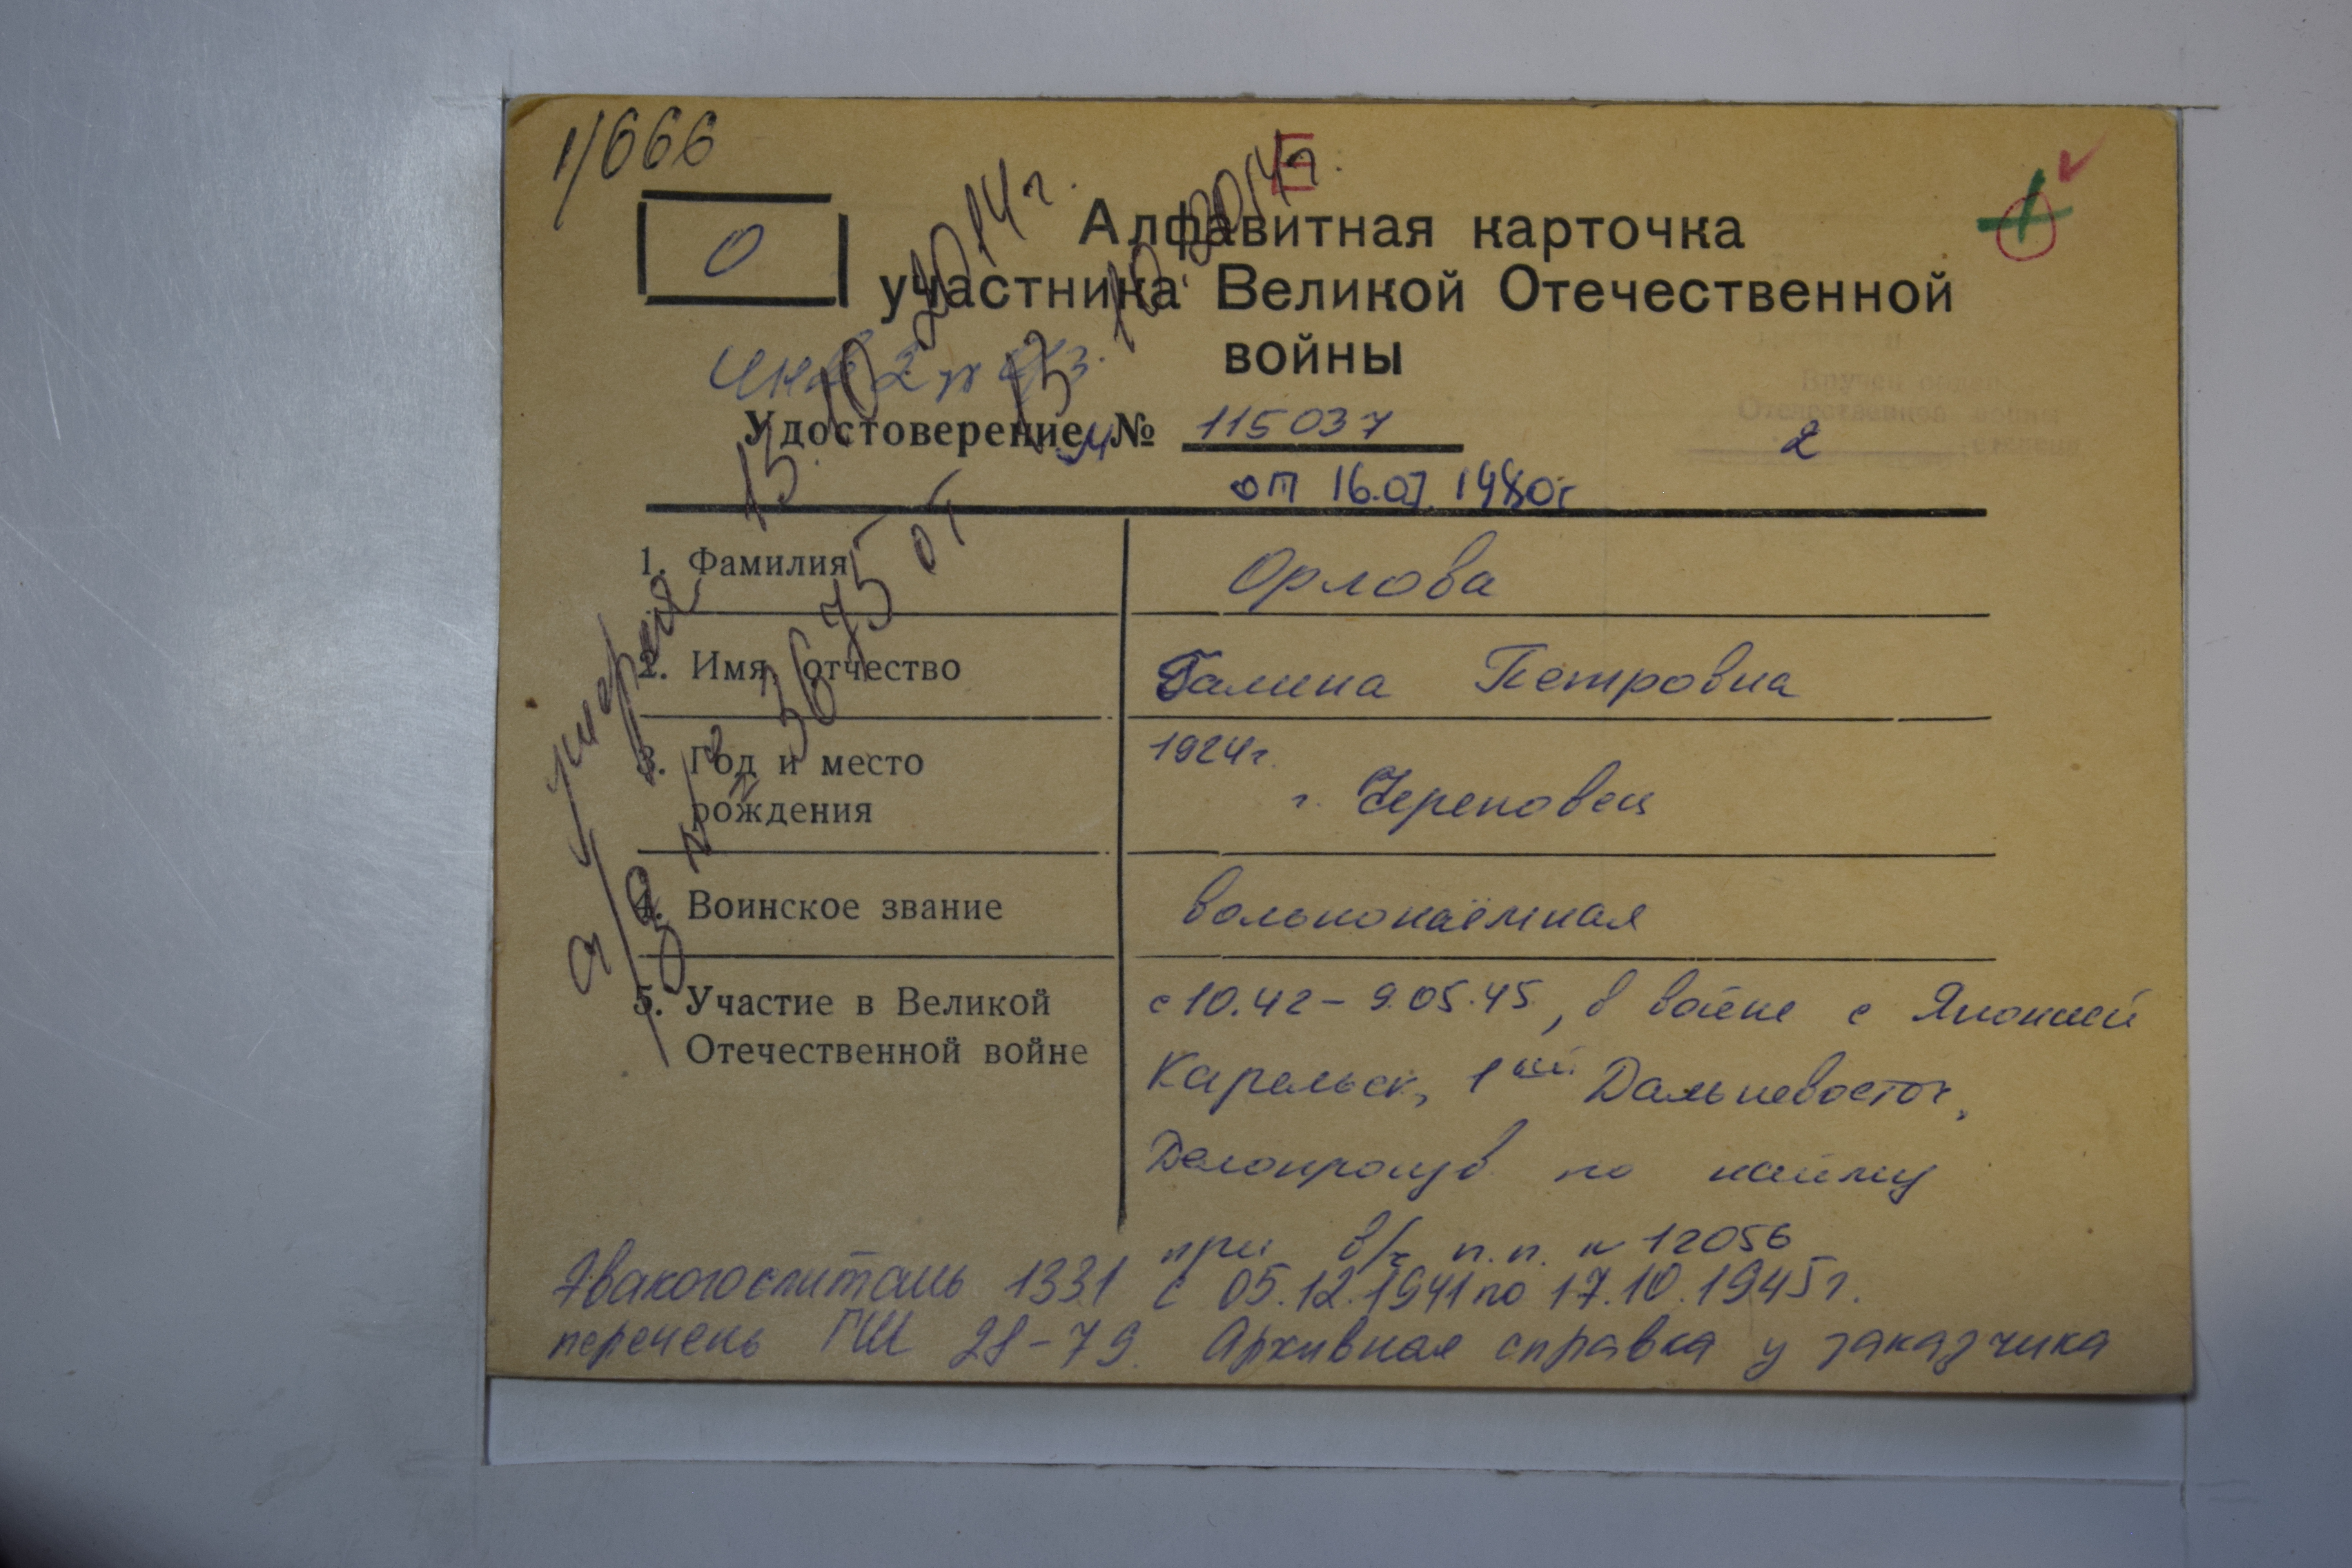 1/666
Е
О
Алфавитная карточка
участника Великой Отечественной
войны
15.10.2014г.
13.10.2014г.
Удостоверение № 115037
Вручен орден
Отечественной войны
2 степени
от 16.07.1980г
1. Фамилия Орлова
2. Имя, отчество Галина Петровна
3. Год и место 1924г.
рождения г. Череповец
4. Воинское звание вольнонаёмная
5. Участие в Великой с 10.42 – 9.05.45, в войне с Японией
Отечественной войне Карельск, 1ый Дальневосточ,
Делопроизв по найму
при в/ч п.п. № 12056
Эвакогоспиталь 1331 с 05.12.1941 по 17.10.1945г.
перечень ГШ 28-79. Архивная справка у заказчика
умерла
3675 от